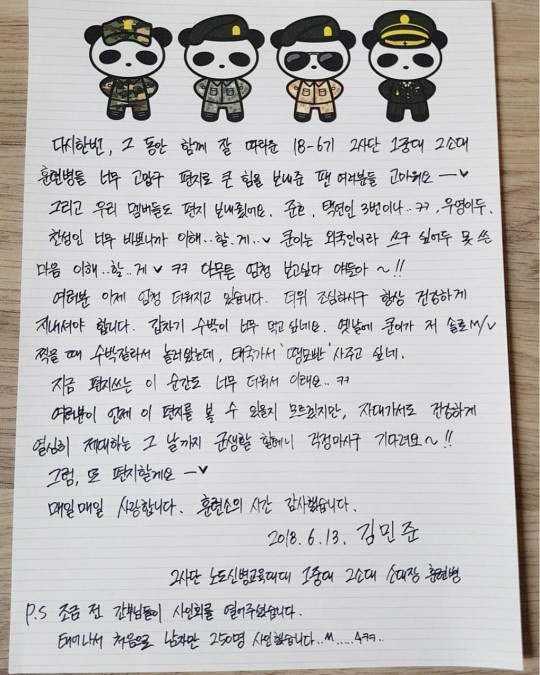 다시한번, 그 동안 함께 잘 따라준 18-6기 2사단 1중대 2소대
훈련병들 너무 고맙구 편지로 큰 힘을 보내준 팬 여러분들 고마워요 ―♥
그리고 우리 멤버들도 편지 보내줬어요. 준호, 택연인 3번이나..ㅋㅋ, 우영이두.
찬성인 너무 바쁘니까 이해..할.게..♥ 쿤이는 외국인이라 쓰구 싶어두 못 쓴
마음 이해..할..게 ♥ ㅋㅋ 다무튼 엄청 보고싶다 야들아 ~ !!
여러분 이제 엄청 더워지고 있습니다. 더위 조심하시구 항상 건강하게
지내셔야 합니다. 갑자기 수박이 너무 먹고 싶네요. 옛날에 쿤이가 저 솔로 M/V
찍을 때 수박잘라서 놀러왔는데, 태국가서 '땡모반' 사주고 싶네.
지금 편지쓰는 이 순간도 너무 더워서 이래요.. ㅋㅋ
여러분이 언제 이 편지를 볼 수 있을지 모르겠지만, 자대가서도 건강하게
열심히 제대하는 그 날까지 군생활 할테니 걱정마시구 기다려요 ~ !!
그럼, 또 편지할게요 ―♥
매일매일 사랑합니다. 훈련소의 시간 감사했습니다.
2018. 6. 13. 김민준
2사단 노도신병교육대대 1중대 2소대 소대장 훈련병
P.S 조금 전 간부님들이 사인회를 열어주셨습니다.
태어나서 처음으로 남자만 250명 사인했습니다..^^.....ㅋㅋ..